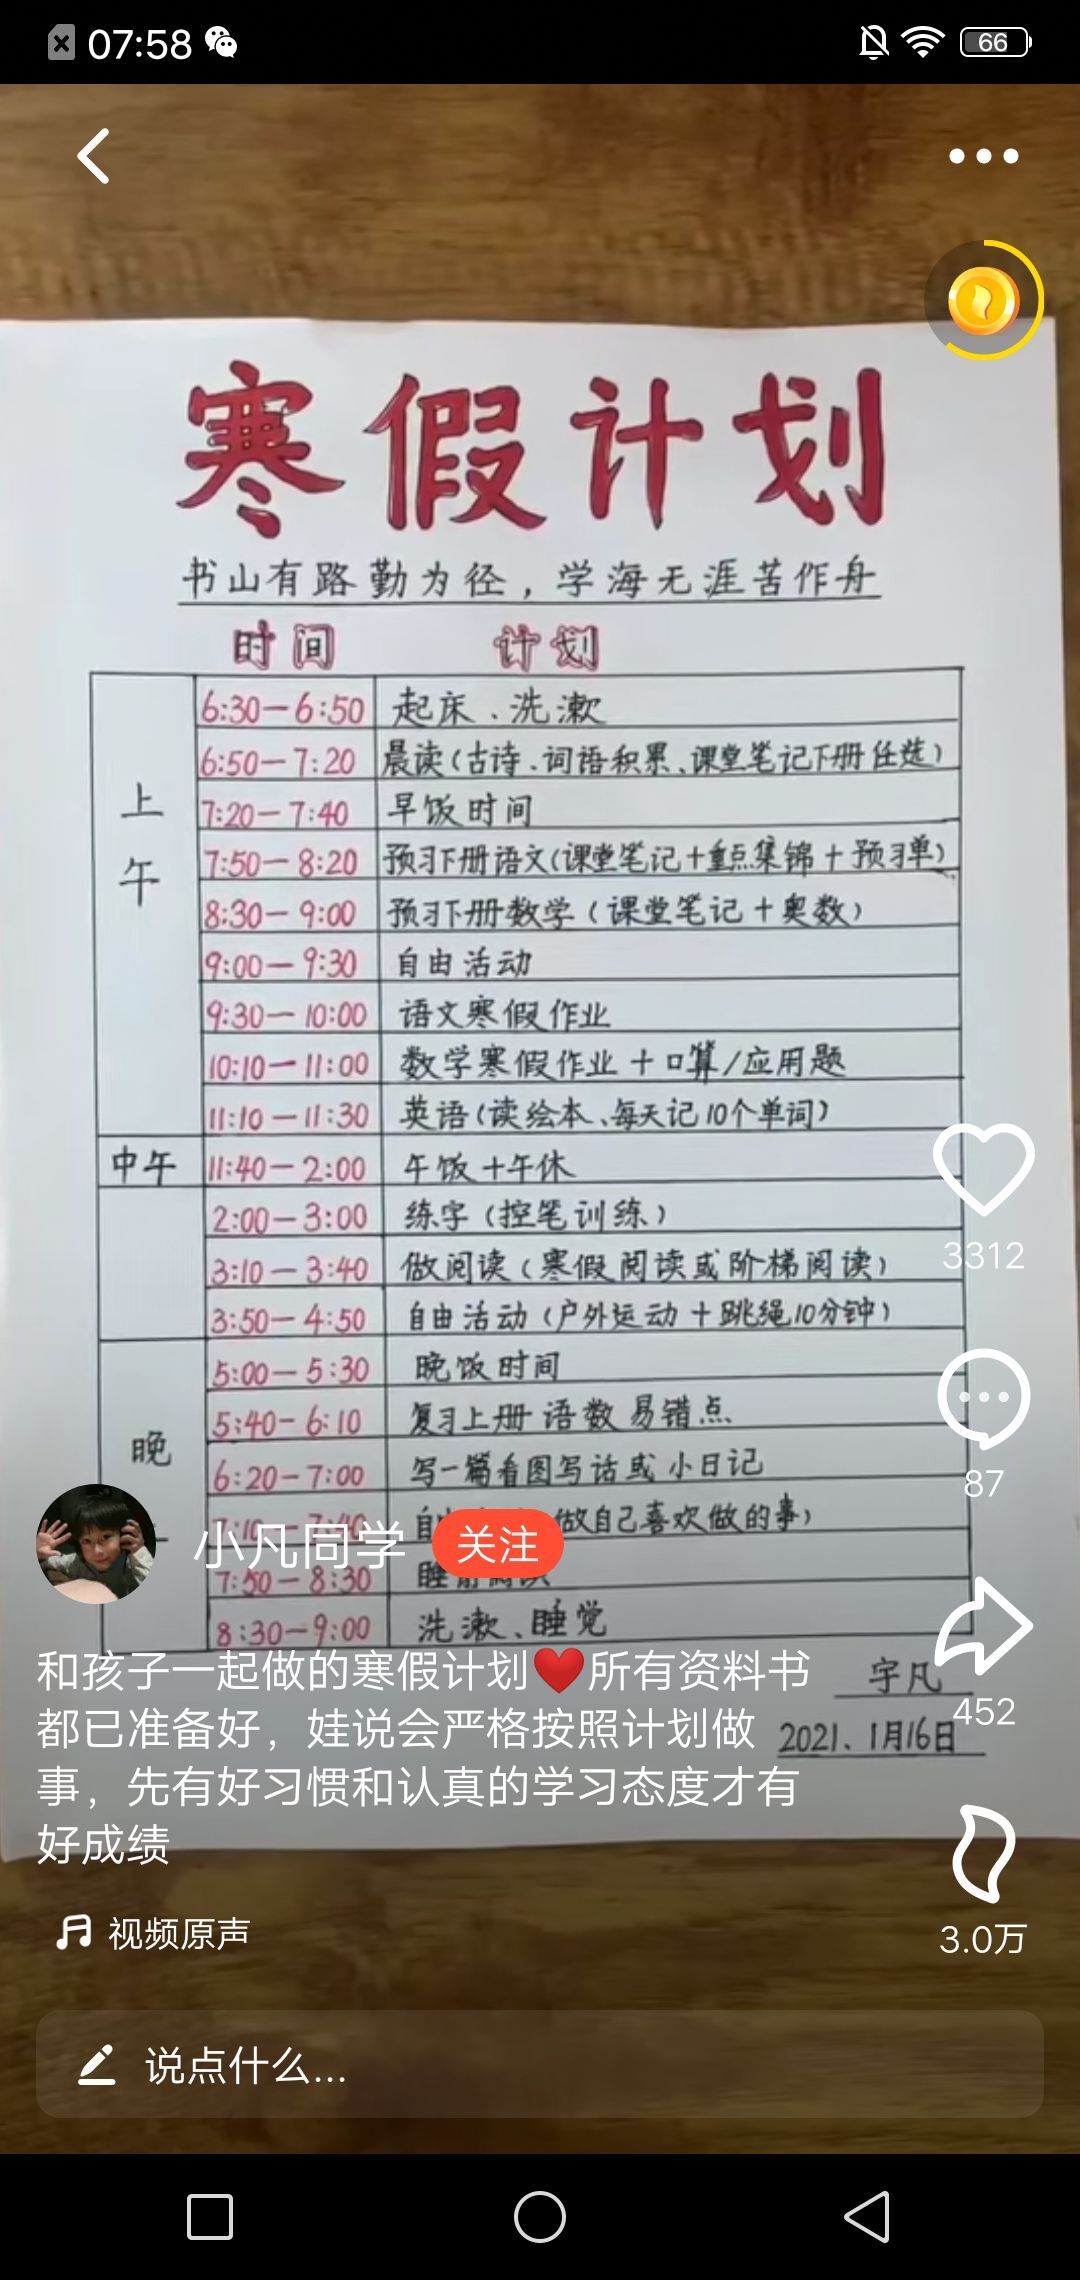 07:58
66
寒假计划
书山有路勤为径，学海无涯苦作舟
时间 计划
上午
6:30—6:50 起床、洗漱
6:50—7:20 晨读(古诗、词语积累、课堂笔记下册任选)
7:20—7:40 早饭时间
7:50—8:20 预习下册语文(课堂笔记+重点集锦+预习单)
8:30—9:00 预习下册数学(课堂笔记+奥数)
9:00—9:30 自由活动
9:30—10:00 语文寒假作业
10:10—11:00 数学寒假作业+口算/应用题
11:10—11:30 英语(读绘本、每天记10个单词)
中午 11:40—2:00 午饭+午休
2:00—3:00 练字(控笔训练)
3:10—3:40 做阅读(寒假阅读或阶梯阅读)
3:50—4:50 自由活动(户外运动+跳绳10分钟)
晚
5:00—5:30 晚饭时间
5:40—6:10 复习上册语数易错点
6:20—7:00 写一篇看图写话或小日记
7:10—7:40 做自己喜欢做的事)
7:50—8:30
8:30—9:00 洗漱、睡觉
宇凡
2021、1月16日
3312
87
452
3.0万
小凡同学 关注
和孩子一起做的寒假计划❤️所有资料书
都已准备好，娃说会严格按照计划做
事，先有好习惯和认真的学习态度才有
好成绩
视频原声
说点什么...